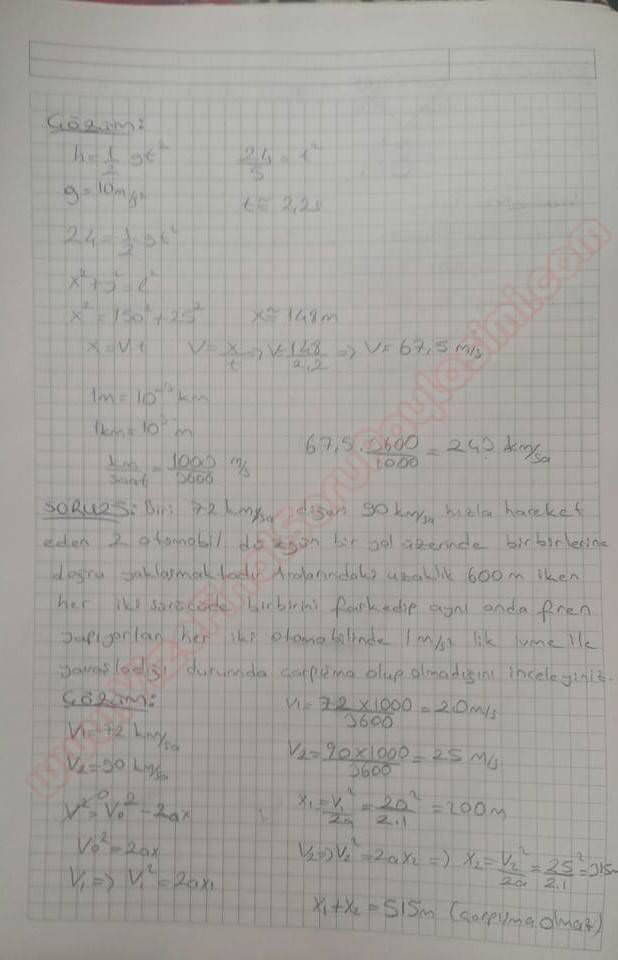 Çözüm:
h=1/2 gt²
24/5 = t²
g=10m/sn
t≅2,2s
24=1/2 gt²
x²+y²=l²
x²=150²+25²
x≅148m
x=Vt V=x/t => V=148/2,2 => V=67,5 m/s
1m=10⁻³ km
1km=10³ m
km/saat = 1000/3600 m/s
67,5.3600/1000=243 km/sa
SORU25: Biri 72 km/sa diğeri 90 km/sa hızla hareket
eden 2 otomobil düzgün bir yol üzerinde birbirlerine
doğru yaklaşmaktadır Aralarındaki uzaklık 600 m iken
her iki sürücüde birbirini farkedip aynı anda fren
yapıyorlar her iki otomobilinde 1m/s² lik ivme ile
yavaşladığı durumda çarpışma olup olmadığını inceleyiniz.
Çözüm:
V1=72 km/sa
V2=90 km/sa
V²=V0²-2ax
V0²=2ax
V1=> V1²=2ax1
V1=72x1000/3600=20m/s
V2=90x1000/3600=25 m/s
x1=V1²/2a=20²/2.1=200m
V2=>V2²=2ax2=> x2=V2²/2a=25²/2.1=315m
x1+x2=515m (çarpışma olmaz)